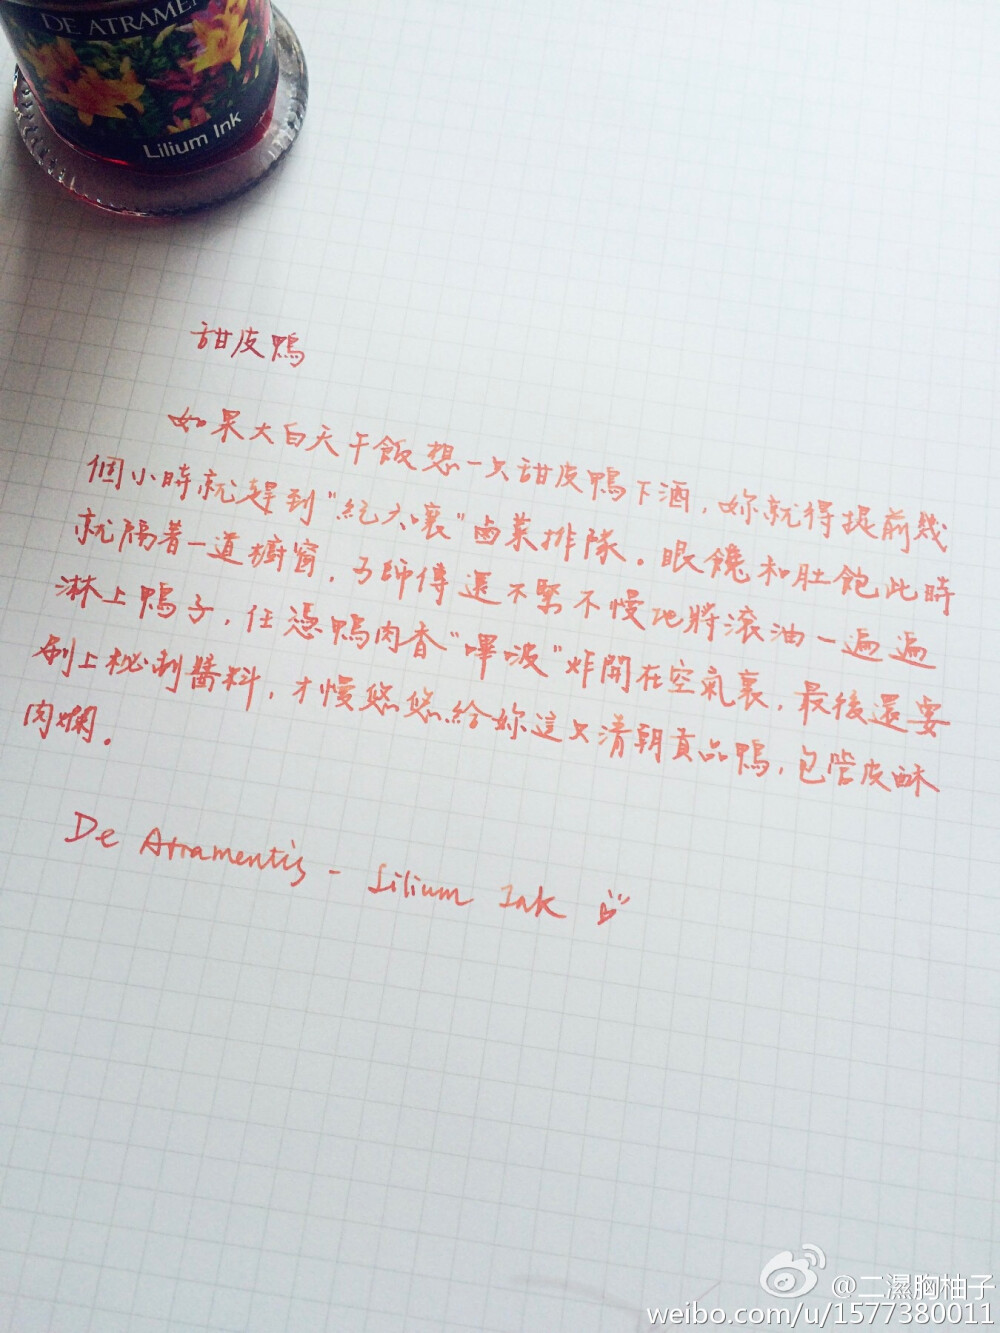 DE ATRAMEN
Lilium Ink
甜皮鴨
如果大白天午飯想一只甜皮鴨下酒，妳就得提前幾
個小時就趕到“紀六孃”鹵菜排隊。眼饞和肚飽此時
就隔着一道櫥窗，刀師傅還不緊不慢地將滾油一遍遍
淋上鴨子，任憑鴨肉香“嗶啵”炸開在空氣裏，最後還要
刷上秘制醬料，才慢悠悠給妳這只清朝貢品鴨，包管皮酥
肉爛。
De Atramentis - Lilium Ink
@二濕胸柚子
weibo.com/u/1577380011